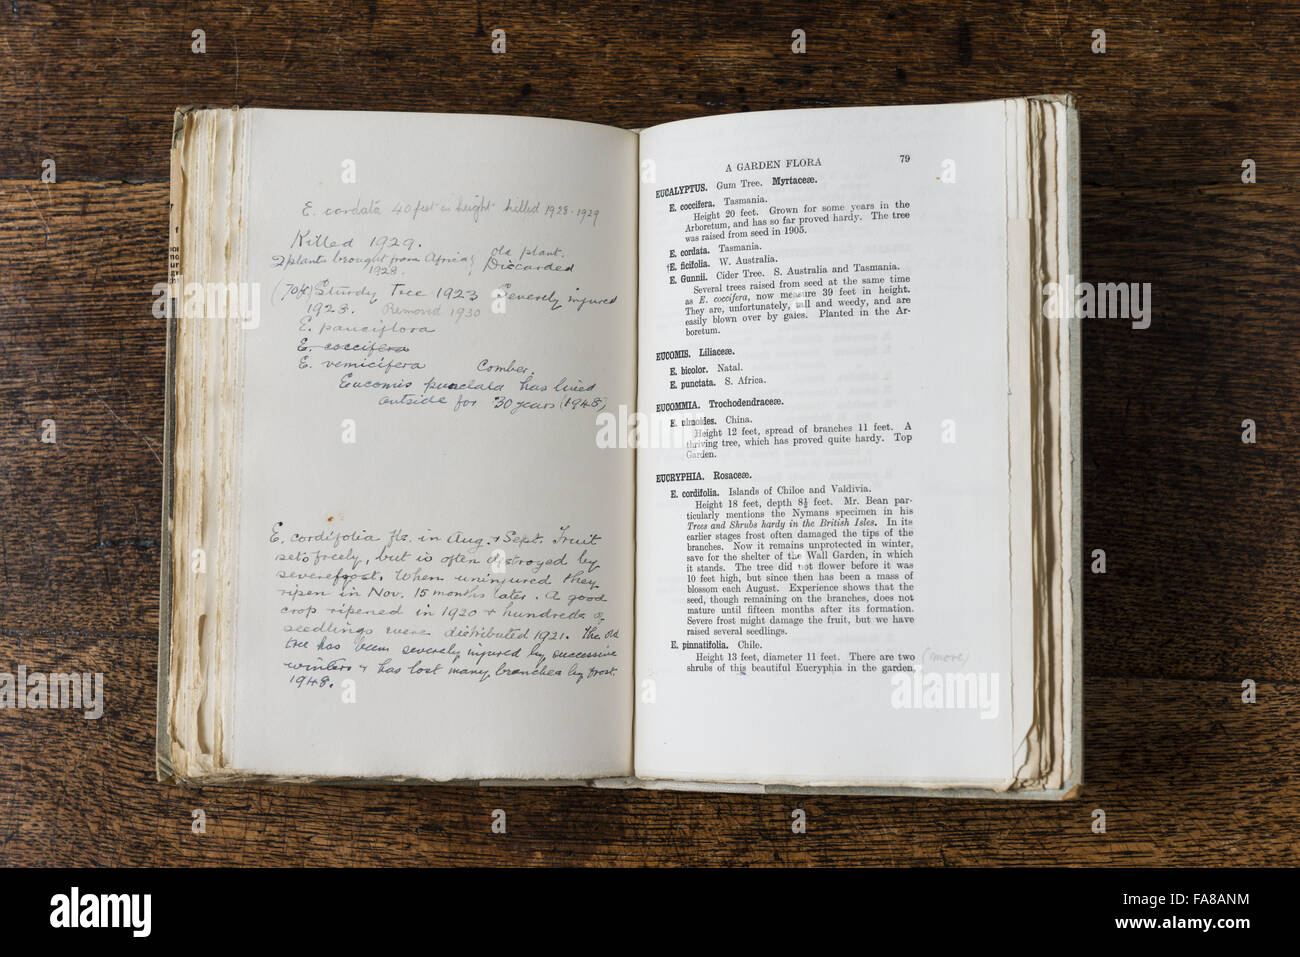 E. cordata 40 feet in height killed 1928-1929
Killed 1929.
2 plants brought from Africa, old plant.
1928. Discarded
(70ft) Sturdy tree 1923 Severely injured
1928. Removed 1930
E. pauciflora
E. coccifera
E. vernicifera Comber.
Eucomis punctata has lived
outside for 30 years (1948)
E. cordifolia fls. in Aug. & Sept. Fruit
sets freely, but is often destroyed by
severe frost. When uninjured they
ripen in Nov. 15 months later. A good
crop ripened in 1920 & hundreds of
seedlings were distributed 1921. The old
tree has been severely injured by successive
winters & has lost many branches by frost.
1948.
A GARDEN FLORA 79
EUCALYPTUS. Gum Tree. Myrtaceæ.
E. coccifera. Tasmania.
Height 20 feet. Grown for some years in the
Arboretum, and has so far proved hardy. The tree
was raised from seed in 1905.
E. cordata. Tasmania.
†E. ficifolia. W. Australia.
E. Gunnii. Cider Tree. S. Australia and Tasmania.
Several trees raised from seed at the same time
as E. coccifera, now measure 39 feet in height.
They are, unfortunately, tall and weedy, and are
easily blown over by gales. Planted in the Ar-
boretum.
EUCOMIS. Liliaceæ.
E. bicolor. Natal.
E. punctata. S. Africa.
EUCOMMIA. Trochodendraceæ.
E. ulmoides. China.
Height 12 feet, spread of branches 11 feet. A
thriving tree, which has proved quite hardy. Top
Garden.
EUCRYPHIA. Rosaceæ.
E. cordifolia. Islands of Chiloe and Valdivia.
Height 18 feet, depth 8½ feet. Mr. Bean par-
ticularly mentions the Nymans specimen in his
Trees and Shrubs hardy in the British Isles. In its
earlier stages frost often damaged the tips of the
branches. Now it remains unprotected in winter,
save for the shelter of the Wall Garden, in which
it stands. The tree did not flower before it was
10 feet high, but since then has been a mass of
blossom each August. Experience shows that the
seed, though remaining on the branches, does not
mature until fifteen months after its formation.
Severe frost might damage the fruit, but we have
raised several seedlings.
E. pinnatifolia. Chile.
Height 13 feet, diameter 11 feet. There are two (more)
shrubs of this beautiful Eucryphia in the garden,
alamy
alamy stock photo
FA8ANM
www.alamy.com